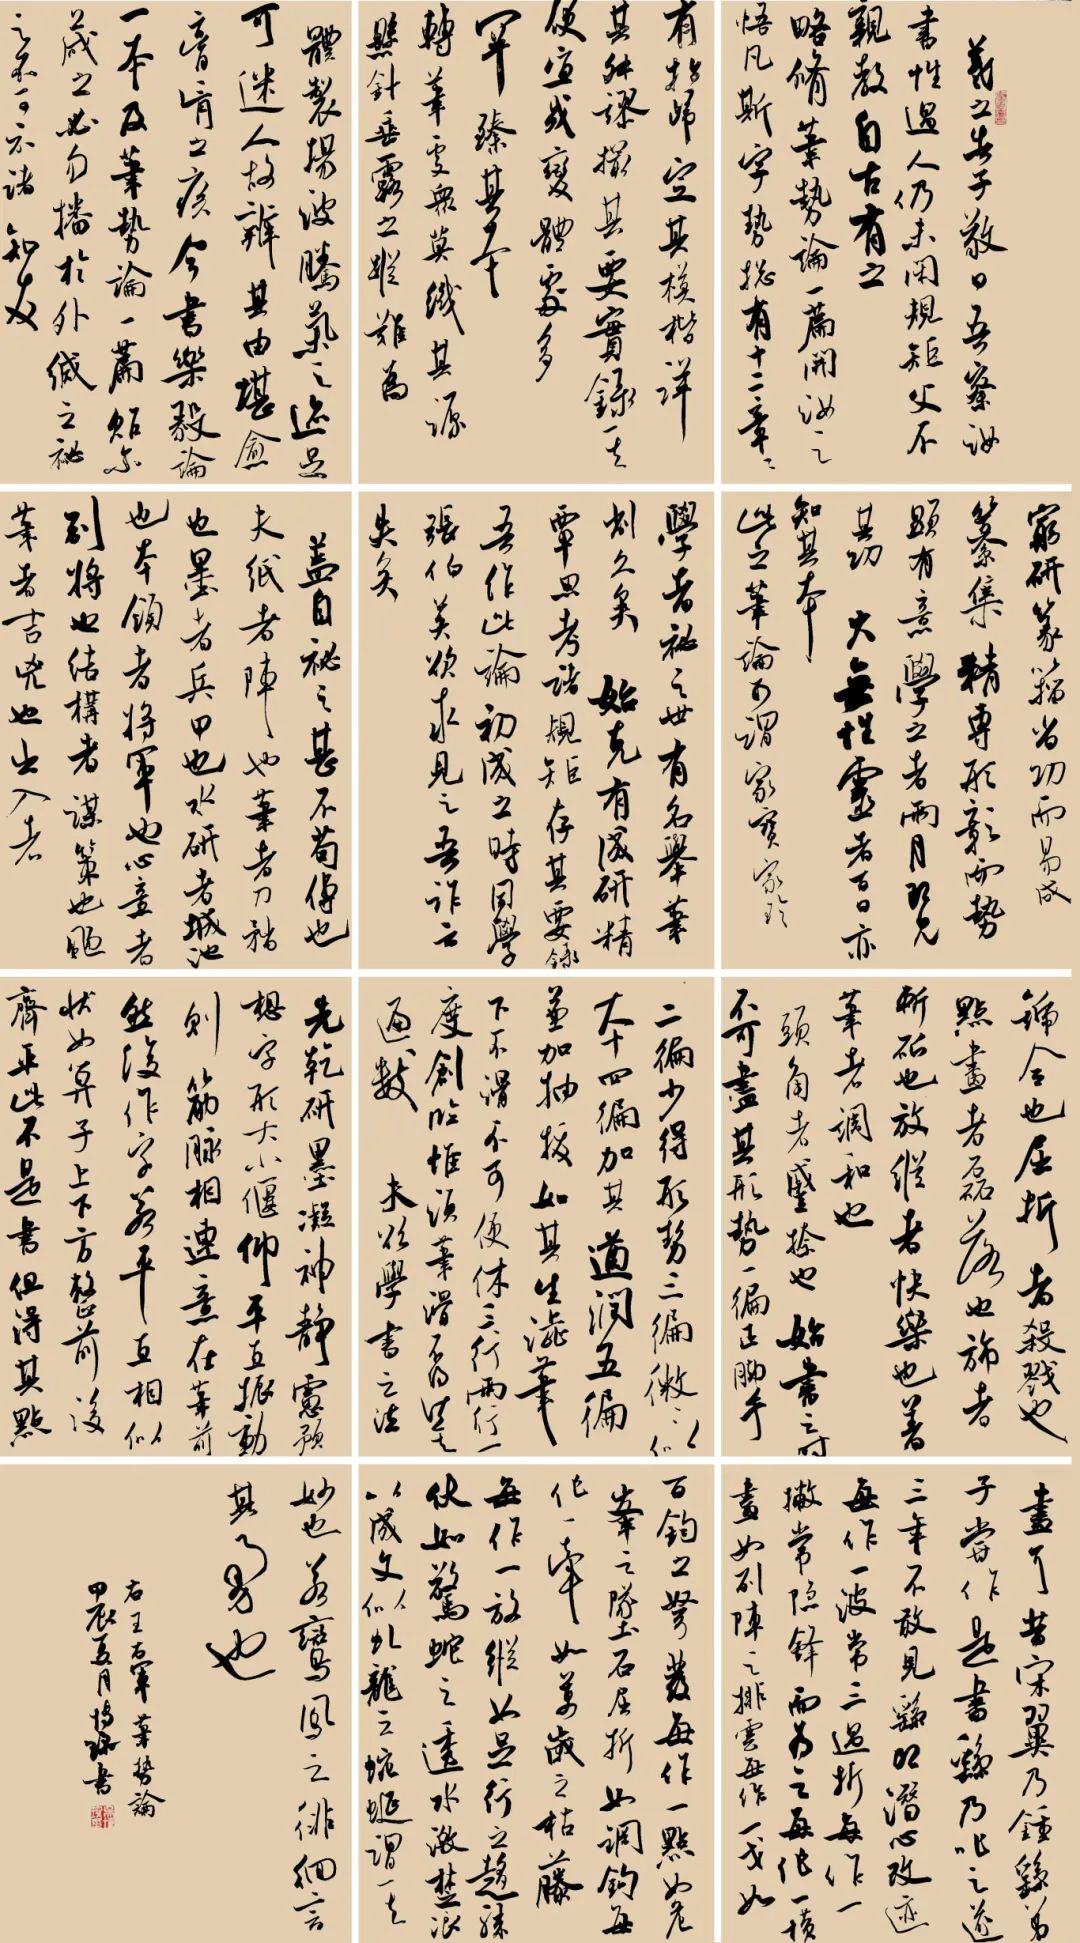 羲之告子敬曰吾察汝
書性過人仍未閑規矩父不
親教自古有之
略脩筆勢論一篇開汝之
悟凡斯字勢總有十二章二
有指歸定其模楷詳
其舛謬撮其要實錄一其
便宜或變體處多
罕臻其本
轉筆處眾莫識其源
懸針垂露之蹤難為
體製揚波騰氣之迹足
可迷人故辨其由堪愈
膏肓之疾今書樂毅論
一本及筆勢論一篇貽尓
藏之必勿播於外緘之祕
之不可示諸知友
窮研篆籀省功而易成
纂集精專形彰而勢
顯有意學之者兩月可見
其功大無性靈者百日亦
知其本
此之筆論可謂家寶家珍
學者祕之世有名舉筆
削久矣始克有成研精
覃思考諸規矩存其要錄
吾作此論初成之時同學
張伯英欲求見之吾詐云
失矣
蓋自祕之甚不苟傳也
夫紙者陣也筆者刀矟
也墨者兵甲也水研者城池
也本領者將軍也心意者
副將也結構者謀策也颺
筆者吉凶也出入者
號令也屈折者殺戮也
點畫者磊落也斾者
斬斫也放縱者快樂也著
筆者調和也
頭角者蹙捺也始書之時
不可盡其形勢一徧正脚手
二徧少得形勢三徧微微似
大十四徧加其遒潤五徧
並加抽拔如其生澁筆
下不滑不可便休三行兩行一
度創臨惟須筆滑不得其
遍數未欲學書之法
先乾研墨凝神靜慮預
想字形大小偃仰平直振動
則筋脉相連意在筆前
然後作字若平直相似
狀如算子上下方整前後
齊平此不是書但得其點
畫耳昔宋翼乃鍾繇弟
子嘗作是書繇乃叱之遂
三年不敢見繇即潛心改迹
每作一波常三過折每作一
撇常隱鋒而為之每作一橫
畫如列陣之排雲每作一戈如
百鈞之弩發每作一點如危
峯之墜石屈折如調鉤每
作一牽如萬歲之枯藤
每作一放縱如足行之趨驟
伏如驚蛇之透水激楚浪
以成文似虬龍之蜿蜒謂其
妙也若鸞鳳之徘徊言
其勇也
右王右軍筆勢論
甲辰夏月書